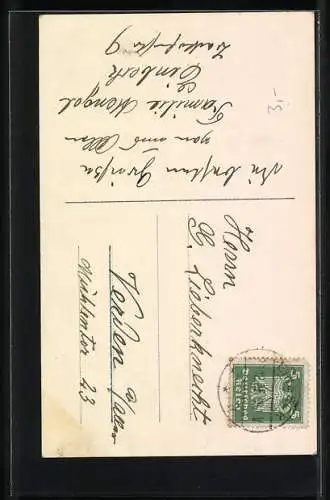 Die besten Grüße
von uns Allen
Familie Mengel
Einbeck
Herrn
H. Lieberknecht
Verden a/Aller
Mühlentor 23
5 5
Deutsches
Reich
30.-